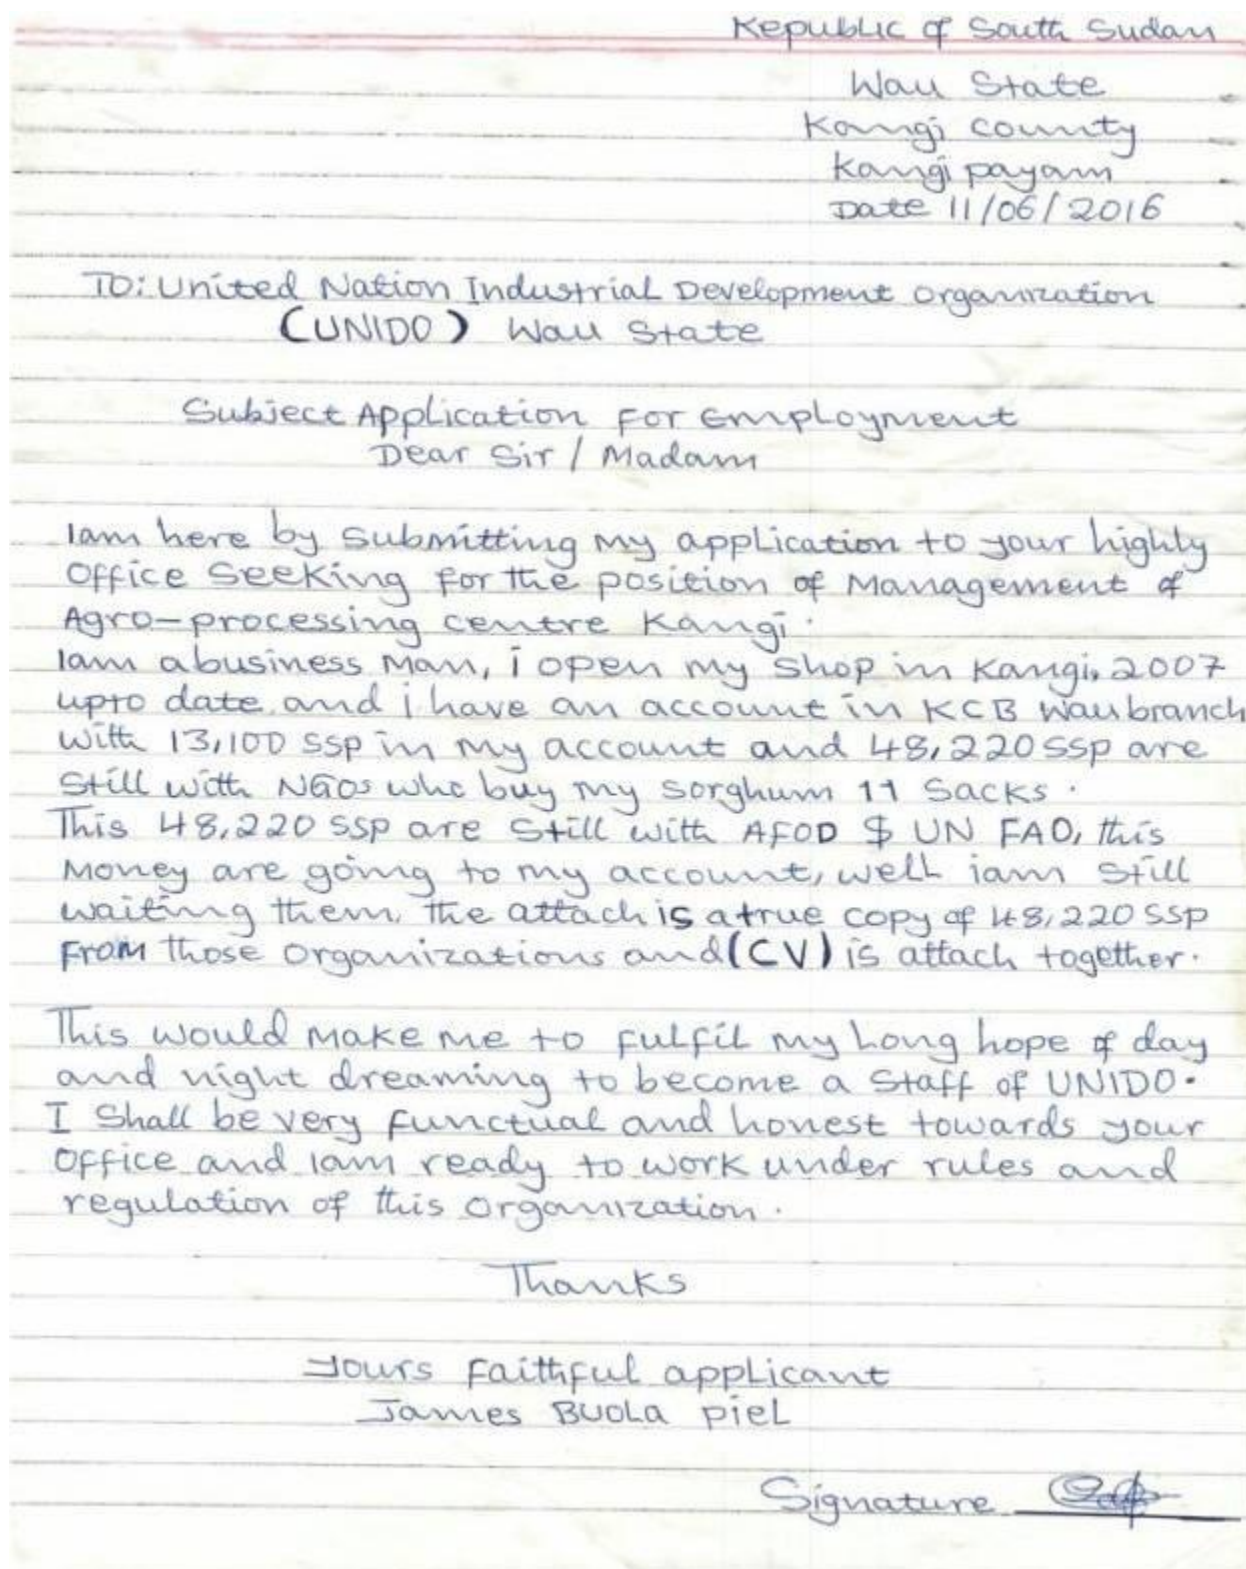 Republic of South Sudan
Wau State
Kangi county
Kangi payam
Date 11/06/2016
TO: United Nation Industrial Development organization
(UNIDO) Wau State
Subject Application For Employment
Dear Sir / Madam
Iam here by submitting my application to your highly
Office Seeking for the position of Management of
Agro-processing centre Kangi.
Iam abusiness Man, i open my shop in Kangi, 2007
upto date and i have an account in KCB Wau branch
With 13,100 SSP in my account and 48,220 SSP are
Still with NGOs who buy my sorghum 11 Sacks.
This 48,220 SSP are Still with AFOD $ UN FAO, this
Money are going to my account, well iam Still
waiting them, the attach is atrue copy of 48,220 SSP
From those Organizations and (CV) is attach together.
This would make me to fulfil my Long hope of day
and night dreaming to become a Staff of UNIDO.
I Shall be very functual and honest towards your
Office and iam ready to work under rules and
regulation of this Organization.
Thanks
Yours Faithful applicant
James Buola Piel
Signature